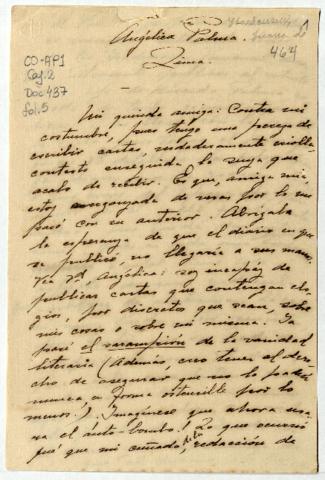 Angélica Palma.
Lima.
CO-AP1
Caj. 2
Doc 437
fol. 5
Juana de
464
Mi querida amiga: Contra mi
costumbre, pues tengo una pereza de
escribir cartas, verdaderamente criolla
contesto enseguida la suya que
acabo de recibir. Es que, amiga mía,
estoy avergonzada de veras por lo que
pasó con su anterior. Abrigaba
la esperanza de que el diario en que
se publicó, no llegaría a sus manos.
Vea Vd, Angélica: soy incapaz de
publicar cartas que contengan elo-
gios, por discretos que sean, sobre
mis cosas o sobre mí misma. Ya
pasé el sarampión de la vanidad
literaria (Además, creo tener el dere-
cho de asegurar que no lo padecí
nunca en forma ostensible por lo
menos!) Imagínese que ahora usa-
ra el auto-bombo! Lo que ocurrió
fué que mi cuñado, de la redacción de